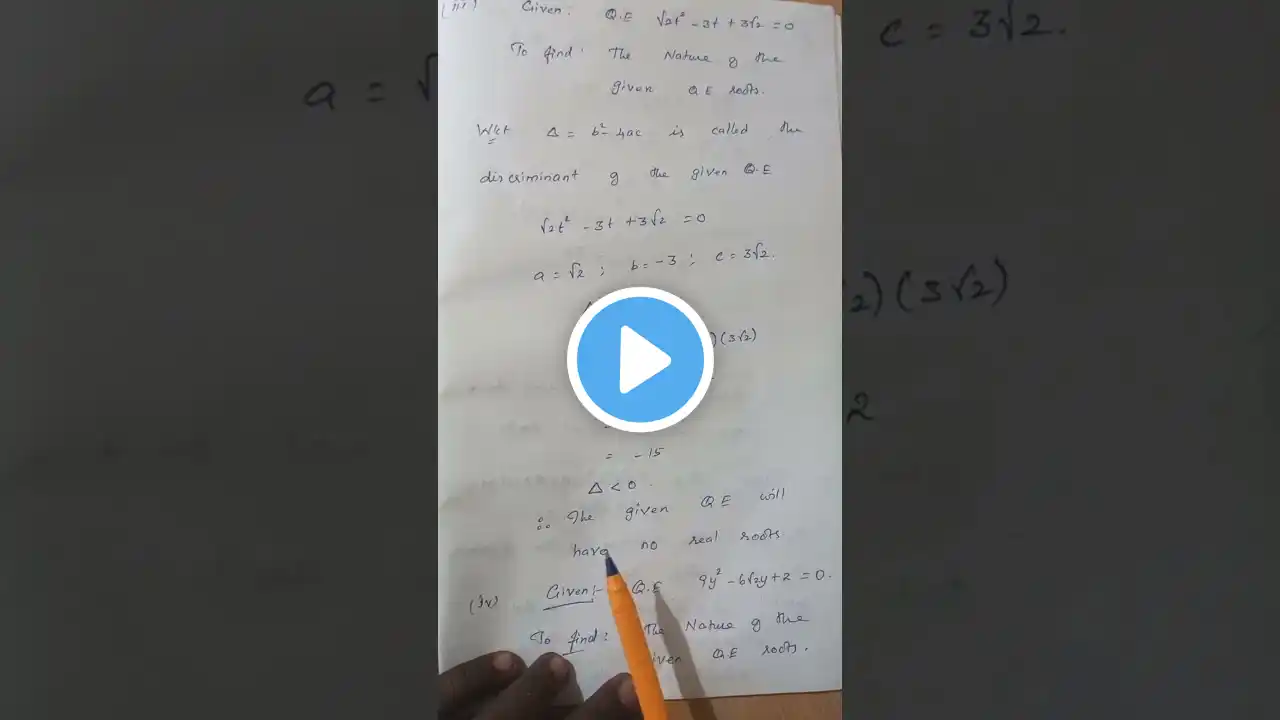 (iii) Given: Q.E √2t² - 3t + 3√2 = 0
To find: The Nature of the
given QE roots.
Wkt Δ = b² - 4ac is called the
discriminant of the given Q.E
√2t² - 3t + 3√2 = 0
a = √2 ; b = -3 ; c = 3√2.
)(3√2)
= -15
Δ < 0.
∴ The given QE will
have no real roots
(iv) Given:- Q.E 9y² - 6√2y + 2 = 0.
To find: The Nature of the
given QE roots.
a = √
c = 3√2.
2)(3√2)
2